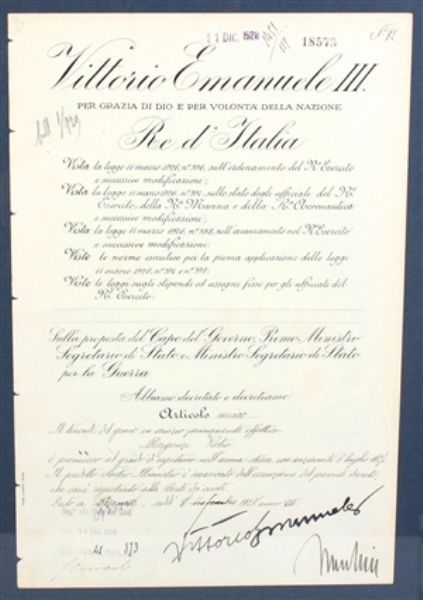 11 DIC. 1928
18573
Vittorio Emanuele III.
PER GRAZIA DI DIO E PER VOLONTÀ DELLA NAZIONE
Re d'Italia
Vista la legge 11 marzo 1926, n° 396, sull'ordinamento del R° Esercito
e successive modificazioni;
Vista la legge 11 marzo 1926, n° 397, sullo stato degli ufficiali del R°
Esercito, della R° Marina e della R° Aeronautica
e successive modificazioni;
Vista la legge 11 marzo 1926, n° 398, sull'avanzamento nel R° Esercito
e successive modificazioni;
Viste le norme esecutive per la prima applicazione delle leggi
11 marzo 1926, n° 397 e n° 398;
Viste le leggi sugli stipendi ed assegni fissi per gli ufficiali del
R° Esercito;
Sulla proposta del Capo del Governo, Primo Ministro
Segretario di Stato e Ministro Segretario di Stato
per la Guerra
Abbiamo decretato e decretiamo:
Articolo unico
Il tenente del genio in servizio permanente effettivo
Pietro
è promosso al grado di capitano nell'arma stessa, con anzianità luglio
Il predetto Nostro Ministro è incaricato dell'esecuzione del presente decreto,
che sarà registrato alla Corte dei conti.
Dato a addì 1928 anno VI
Vittorio Emanuele
Mussolini